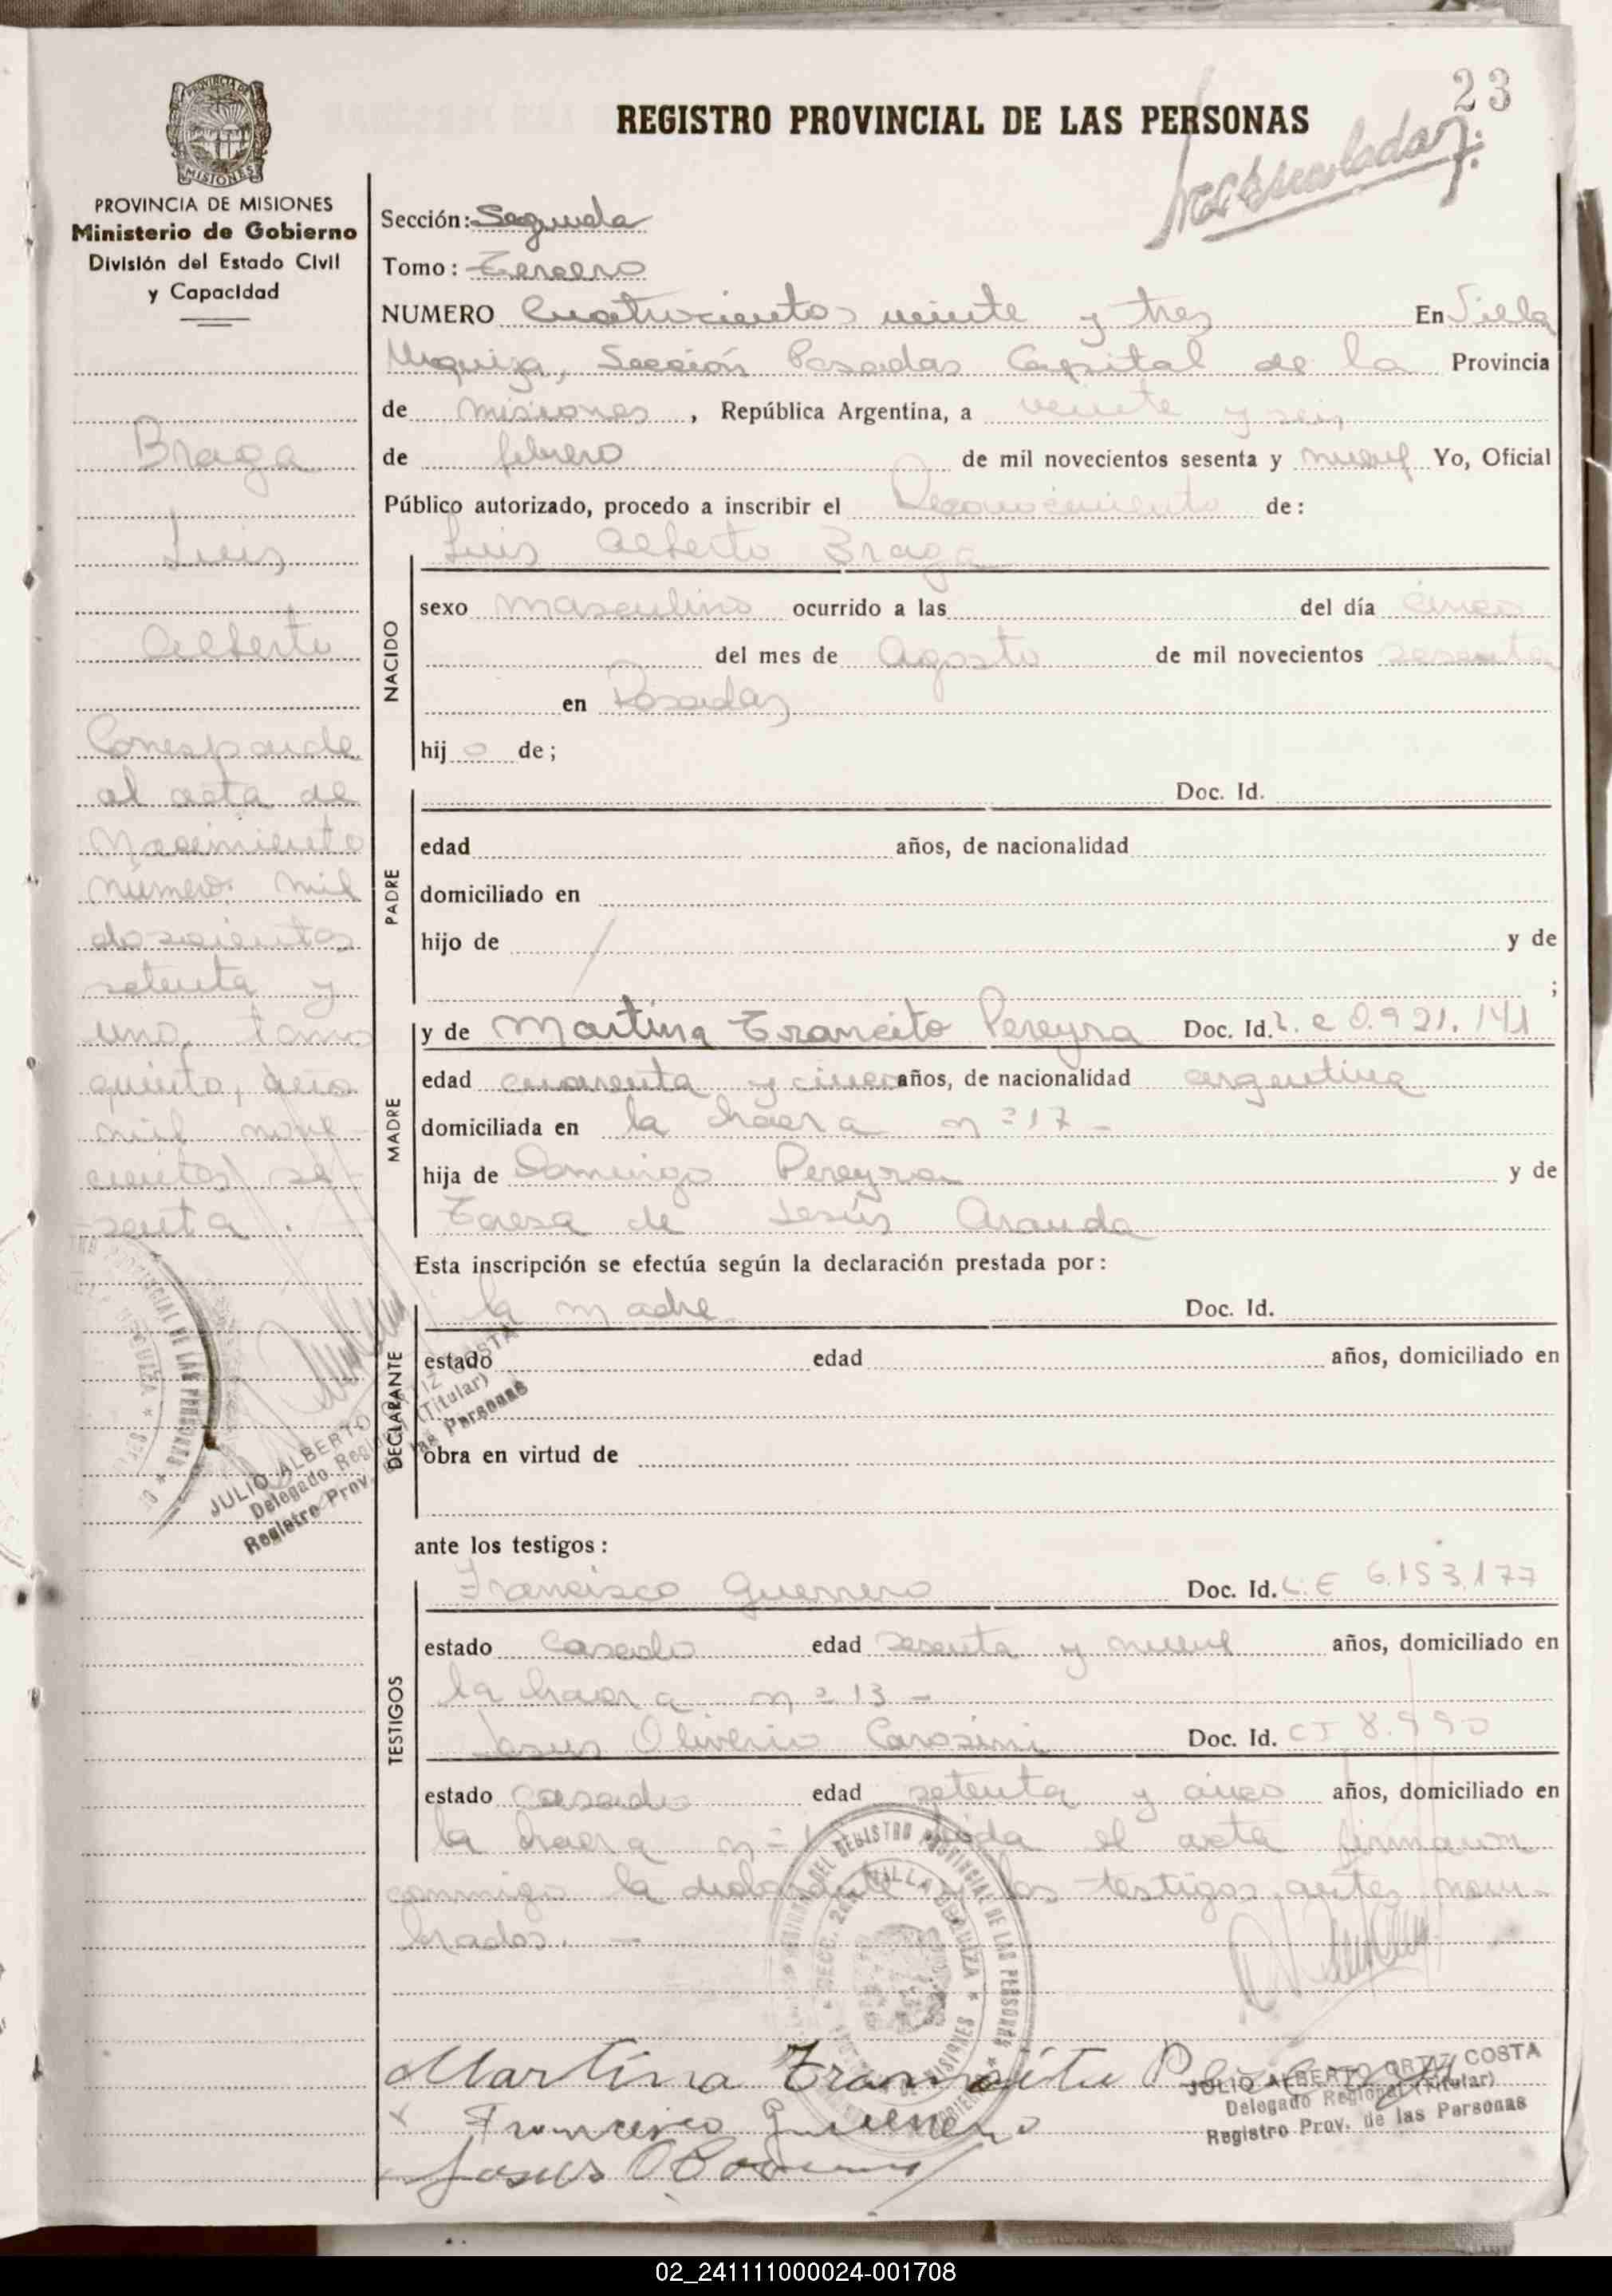 23
REGISTRO PROVINCIAL DE LAS PERSONAS
PROVINCIA DE MISIONES
Ministerio de Gobierno
División del Estado Civil
y Capacidad
Sección: Segunda
Tomo: Tercero
NUMERO Cuatrocientos veinte y tres En Villa
Urquiza, Sección Posadas Capital de la Provincia
de misiones, República Argentina, a veinte y seis
de febrero de mil novecientos sesenta y nueve Yo, Oficial
Público autorizado, procedo a inscribir el Reconocimiento de:
Luis Alberto Braga
NACIDO
sexo masculino ocurrido a las del día cinco
del mes de Agosto de mil novecientos sesenta
en Posadas
hij o de;
PADRE
Doc. Id.
edad años, de nacionalidad
domiciliado en
hijo de y de
;
MADRE
y de Martina Trancito Pereyra Doc. Id. L. C 0.921.141
edad cuarenta y cinco años, de nacionalidad argentina
domiciliada en la chacra nº 17 -
hija de Domingo Pereyra y de
Teresa de Jesús Aranda
Esta inscripción se efectúa según la declaración prestada por:
DECLARANTE
la madre Doc. Id.
estado edad años, domiciliado en
obra en virtud de
ante los testigos:
TESTIGOS
Francisco Guerrero Doc. Id. L.E 6.153.177
estado casado edad sesenta y nueve años, domiciliado en
la chacra nº 13 -
Jesus Oliverio Carosini Doc. Id. CI 8.990
estado casado edad setenta y cinco años, domiciliado en
la chacra nº 1 leida el acta firmaron
conmigo la declarante y los testigos antes nom-
brados. -
Martina Trancito Pereyra
Francisco Guerrero
Jesus O
JULIO ALBERTO ORTIZ COSTA
Delegado Regional (Titular)
Registro Prov. de las Personas
Braga
Luis
Alberto
Corresponde
al acta de
Nacimiento
número: mil
doscientos
setenta y
uno, tomo
quinto, año
mil nove-
cientos se-
senta.
JULIO ALBERTO ORTIZ COSTA
Delegado Regional (Titular)
Registro Prov. de las Personas
02_241111000024-001708